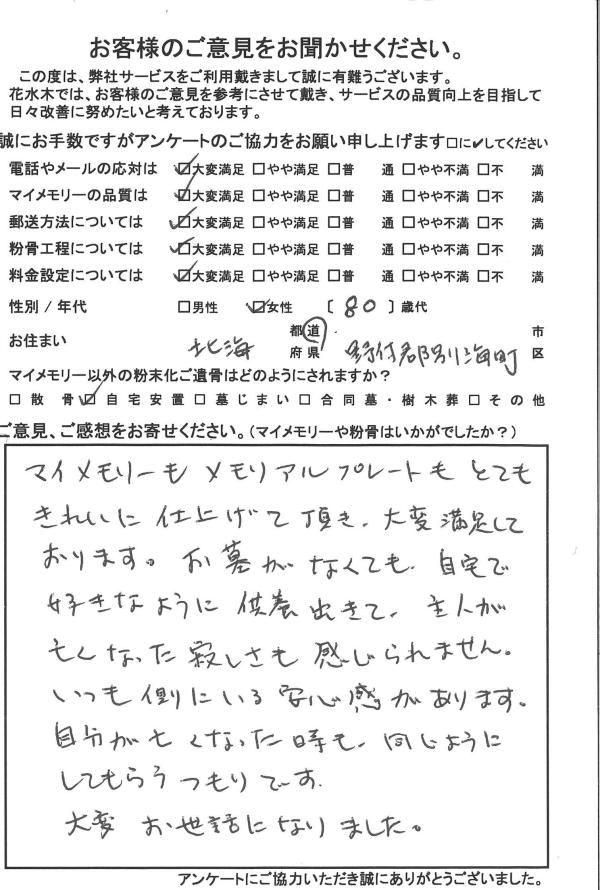 お客様のご意見をお聞かせください。
この度は、弊社サービスをご利用戴きまして誠に有難うございます。
花水木では、お客様のご意見を参考にさせて戴き、サービスの品質向上を目指して
日々改善に努めたいと考えております。
誠にお手数ですがアンケートのご協力をお願い申し上げます□に✔してください
電話やメールの応対は ☑大変満足 □やや満足 □普 通 □やや不満 □不 満
マイメモリーの品質は ☑大変満足 □やや満足 □普 通 □やや不満 □不 満
郵送方法については ☑大変満足 □やや満足 □普 通 □やや不満 □不 満
粉骨工程については ☑大変満足 □やや満足 □普 通 □やや不満 □不 満
料金設定については ☑大変満足 □やや満足 □普 通 □やや不満 □不 満
性別 / 年代 □男性 ☑女性 〔 80 〕歳代
お住まい 北海 都道府県 野付郡別海町 市区
マイメモリー以外の粉末化ご遺骨はどのようにされますか？
□散 骨 ☑自宅安置 □墓じまい □合同墓・樹木葬 □その他
ご意見、ご感想をお寄せください。(マイメモリーや粉骨はいかがでしたか？)
マイメモリーも メモリアルプレートも とても
きれいに 仕上げて 頂き、大変満足して
おります。お墓がなくても、自宅で
好きなように 供養出きて、主人が
亡くなった寂しさも 感じられません。
いつも側にいる 安心感があります。
自分が亡くなった時も、同じように
してもらう つもりです。
大変 お世話になりました。
アンケートにご協力いただき誠にありがとうございました。